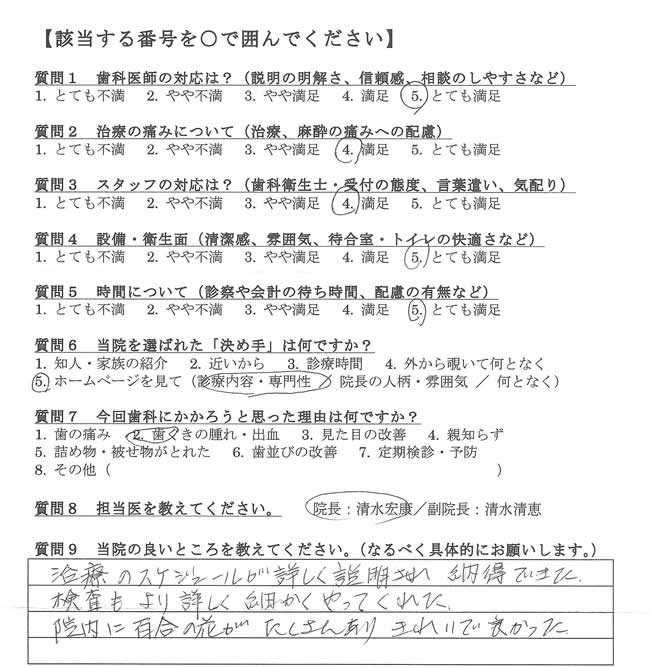 【該当する番号を〇で囲んでください】
質問1 歯科医師の対応は?(説明の明解さ、信頼感、相談のしやすさなど)
1. とても不満 2. やや不満 3. やや満足 4. 満足 5. とても満足
質問2 治療の痛みについて(治療、麻酔の痛みへの配慮)
1. とても不満 2. やや不満 3. やや満足 4. 満足 5. とても満足
質問3 スタッフの対応は?(歯科衛生士・受付の態度、言葉遣い、気配り)
1. とても不満 2. やや不満 3. やや満足 4. 満足 5. とても満足
質問4 設備・衛生面(清潔感、雰囲気、待合室・トイレの快適さなど)
1. とても不満 2. やや不満 3. やや満足 4. 満足 5. とても満足
質問5 時間について(診察や会計の待ち時間、配慮の有無など)
1. とても不満 2. やや不満 3. やや満足 4. 満足 5. とても満足
質問6 当院を選ばれた「決め手」は何ですか?
1. 知人・家族の紹介 2. 近いから 3. 診療時間 4. 外から覗いて何となく
5. ホームページを見て(診療内容・専門性 / 院長の人柄・雰囲気 / 何となく)
質問7 今回歯科にかかろうと思った理由は何ですか?
1. 歯の痛み 2. 歯ぐきの腫れ・出血 3. 見た目の改善 4. 親知らず
5. 詰め物・被せ物がとれた 6. 歯並びの改善 7. 定期検診・予防
8. その他( )
質問8 担当医を教えてください。 院長:清水宏康/副院長:清水清恵
質問9 当院の良いところを教えてください。(なるべく具体的にお願いします。)
治療のスケジュールが詳しく説明され 納得できた.
検査もより詳しく細かくやってくれた.
院内に百合の花がたくさんあり きれいで良かった.